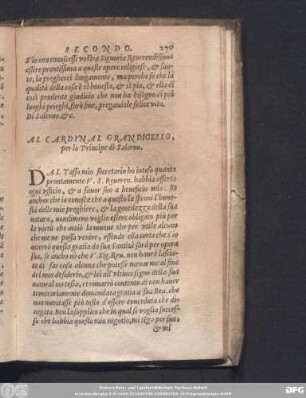 SECONDO. 270
S'io non conoscessi vostra Signoria Reverendissima
essere prontissima a queste opere religiose, & san-
te, la pregherei lungamente, ma perche so che la
qualità della cosa è sì honesta, & sì pia, & ella di
così prudente giudicio che non ha bisogno di più
lunghi preghi, farò fine, pregandole felice vita.
Di Salerno &c.
AL CARDINAL
per la Principe di Salerno.
DAL Tasso mio secretario ho inteso quanto
prontamente V. S. Reveren. habbia offerto
ogni officio, & a favor suo a beneficio mio. Et
anchor che io conosca che a questo la sproni l'hone-
stà delle mie preghiere, & la gentilezza della sua
natura, nondimeno voglio essere obligata più per
la virtù che anchor
che me ne possa venire, essendo ella certa che s'io
otterrò questa gratia da sua Santità sarà per opera
sua, & ancho no che V. Sig. Rev. non haurà lascia-
to di far cosa alcuna che potesse
del mio desiderio, & lei all'ultimo segno della sua
natural cortesia, & rimarrò contenta di non haver
temerariamente domandato gratia a sua Bea. che
non meritasse più tosto d'essere conceduta che di-
negata. Ben la supplico che in qual si voglia succes-
so che habbia questo mio negotio, mi tega per sua,
& mi